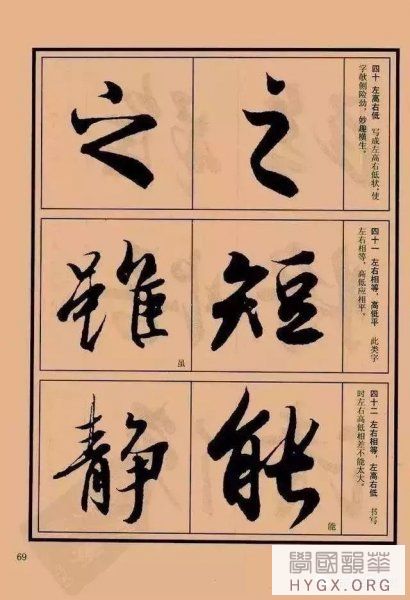 四十 左高右低 写成左高右低状，使
字欹侧险劲，妙趣横生。
之
之
四十一 左右相等，高低平 此类字
左右相等，高低应相平。
短
雖
虽
四十二 左右相等，左高右低 书写
时左右高低相差不能太大。
能
能
静
69
學國韻華
HYGX.ORG